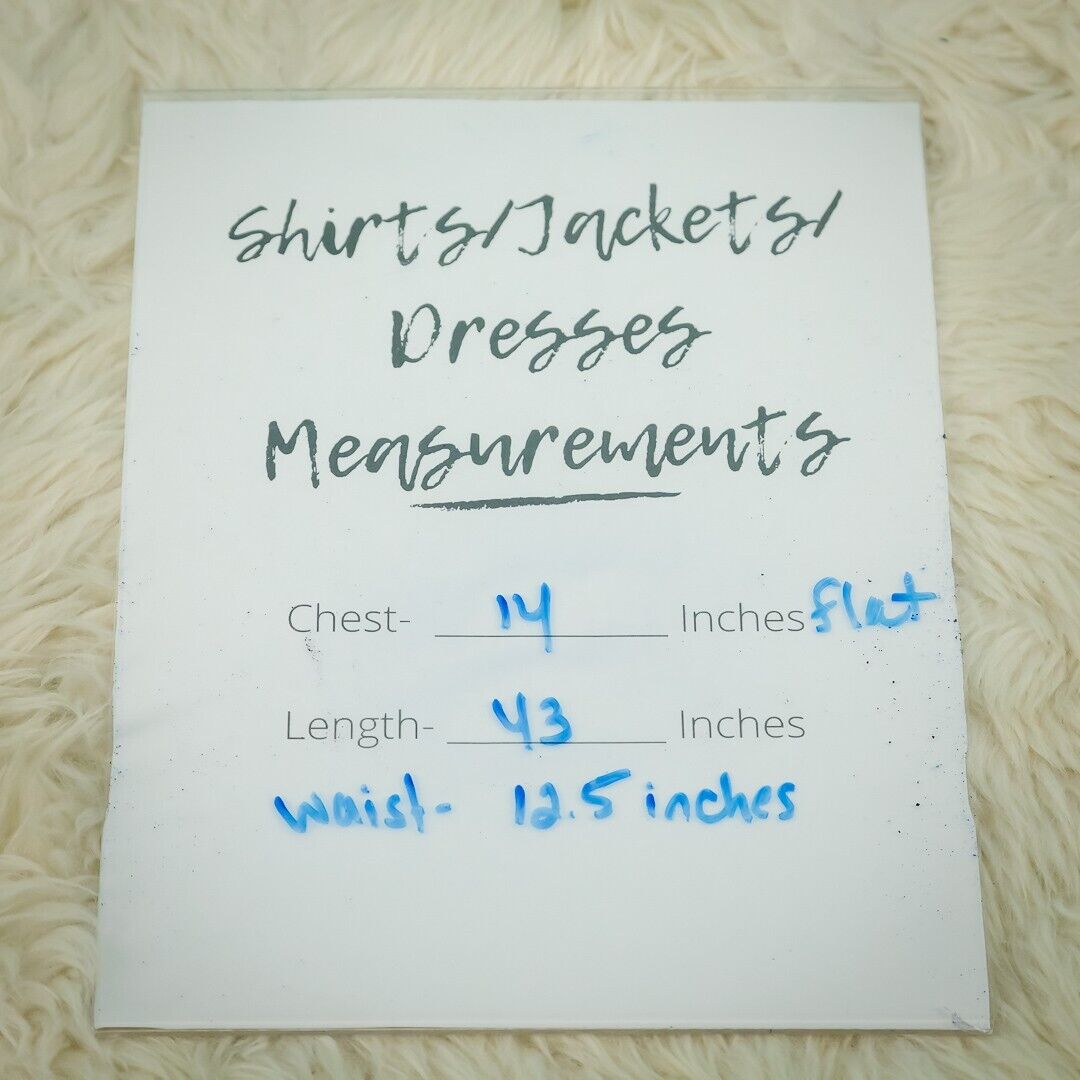 Shirts/Jackets/
Dresses
Measurements
Chest- 14 Inches flat
Length- 43 Inches
waist- 12.5 inches